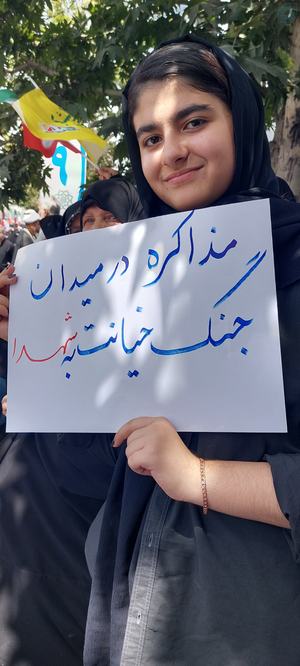 مذاکره در میدان
جنگ خیانت به شهدا